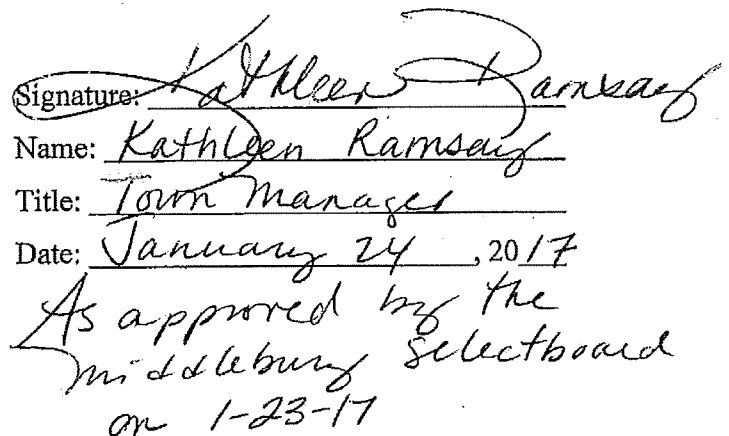 Signature: Kathleen Ramsay
Name: Kathleen Ramsay
Title: Town Manager
Date: January 24, 2017
As approved by the
Middlebury Selectboard
on 1-23-17